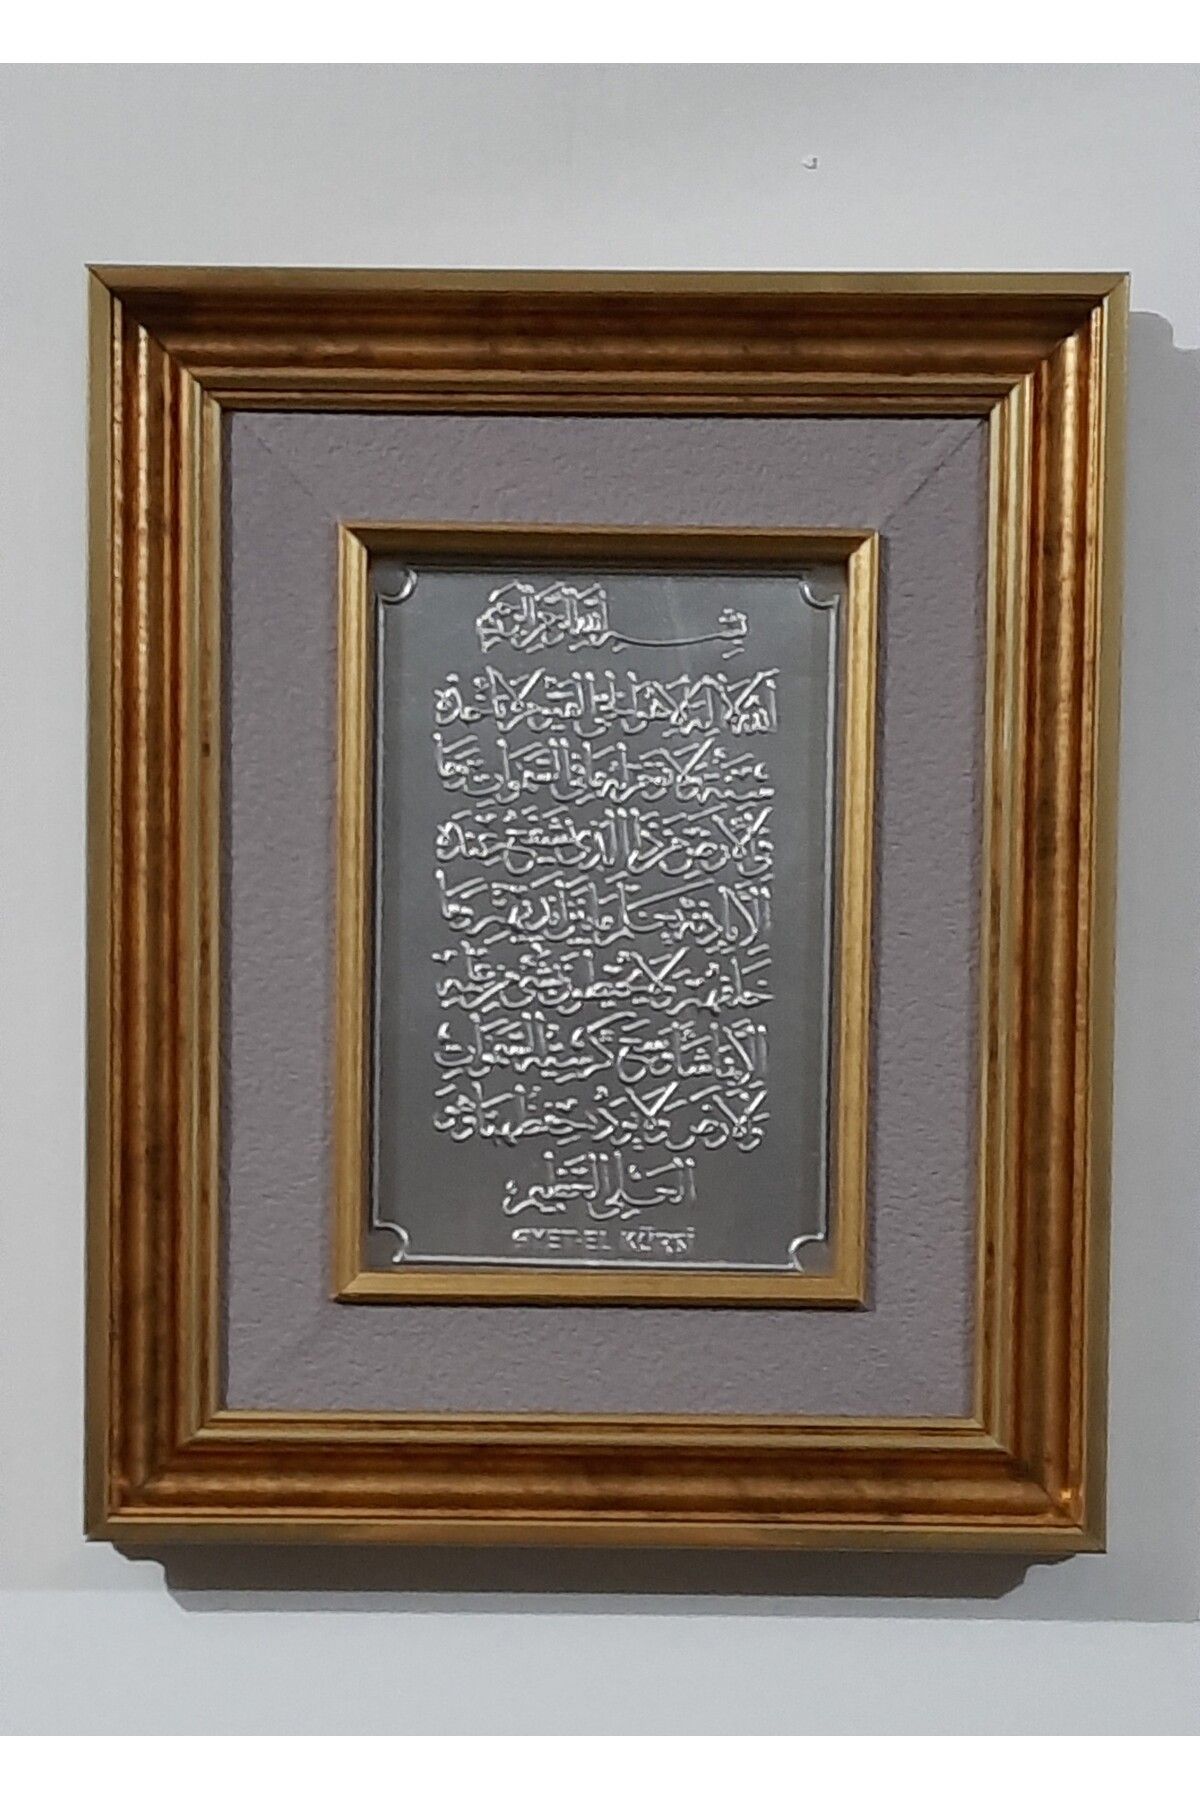 بسم الله الرحمن الرحيم
الله لا إله إلا هو الحي القيوم لا تأخذه
سنة ولا نوم له ما في السموات وما
في الأرض من ذا الذي يشفع عنده
إلا بإذنه يعلم ما بين أيديهم وما
خلفهم ولا يحيطون بشيء من علمه
إلا بما شاء وسع كرسيه السموات
والأرض ولا يؤده حفظهما وهو
العلي العظيم
AYET-EL KÜRSİ